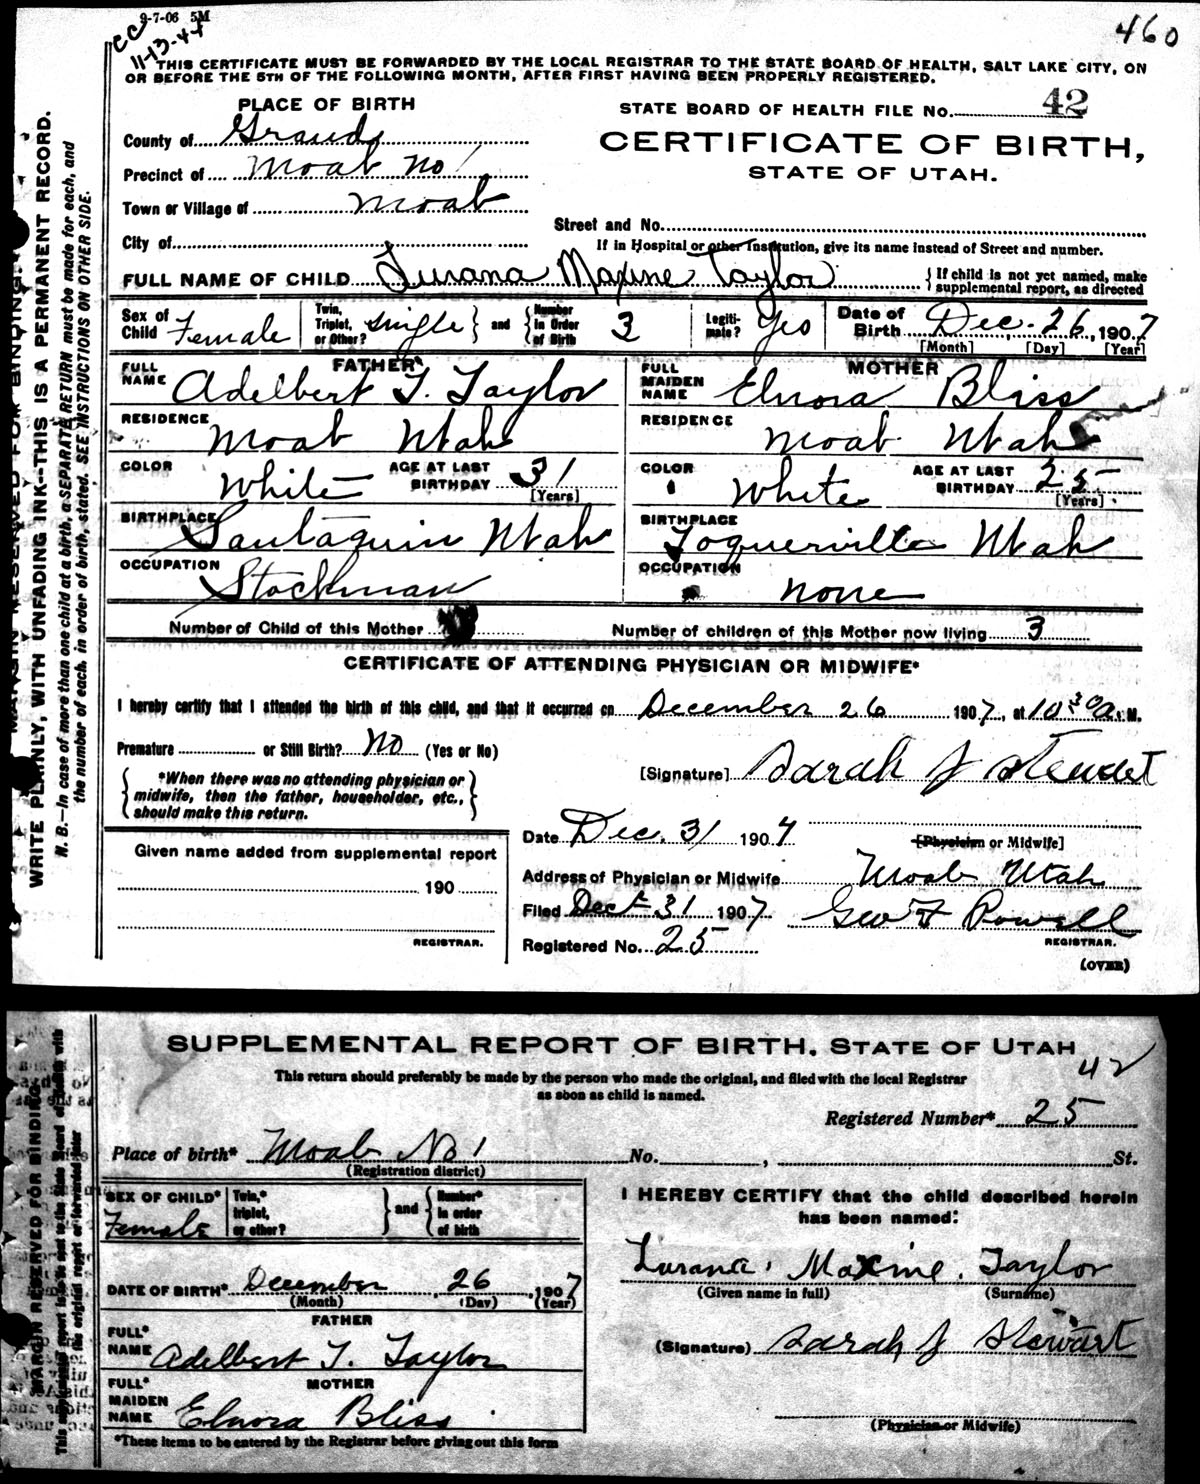 9-7-06 5M
CC
11-13-44
460
THIS CERTIFICATE MUST BE FORWARDED BY THE LOCAL REGISTRAR TO THE STATE BOARD OF HEALTH, SALT LAKE CITY, ON
OR BEFORE THE 5TH OF THE FOLLOWING MONTH, AFTER FIRST HAVING BEEN PROPERLY REGISTERED.
PLACE OF BIRTH
STATE BOARD OF HEALTH FILE No. 42
County of Grand
CERTIFICATE OF BIRTH,
STATE OF UTAH.
Precinct of Moab No 1
Town or Village of Moab
Street and No.
City of
If in Hospital or other Institution, give its name instead of Street and number.
FULL NAME OF CHILD Lurana Maxine Taylor { If child is not yet named, make supplemental report, as directed
Sex of Child Female Twin, Triplet, or Other? single } and { Number in Order of Birth 3 Legitimate? Yes Date of Birth Dec. 26, 1907
[Month] [Day] [Year]
FATHER MOTHER
FULL NAME Adelbert T. Taylor FULL MAIDEN NAME Elnora Bliss
RESIDENCE Moab Utah RESIDENCE Moab Utah
COLOR White AGE AT LAST BIRTHDAY 31 [Years] COLOR White AGE AT LAST BIRTHDAY 25 [Years]
BIRTHPLACE Santaquin Utah BIRTHPLACE Toquerville Utah
OCCUPATION Stockman OCCUPATION none
Number of Child of this Mother Number of children of this Mother now living 3
CERTIFICATE OF ATTENDING PHYSICIAN OR MIDWIFE*
I hereby certify that I attended the birth of this child, and that it occurred on December 26 1907, at 10 30 a. M.
Premature or Still Birth? No (Yes or No)
[Signature] Sarah J Stewart
{ *When there was no attending physician or midwife, then the father, householder, etc., should make this return. }
Date Dec. 31 1907 [Physician or Midwife]
Given name added from supplemental report
Address of Physician or Midwife Moab Utah
190
Filed Dec 31 1907 Geo F Powell
REGISTRAR. Registered No. 25 REGISTRAR.
(OVER)
MARGIN RESERVED FOR BINDING
WRITE PLAINLY, WITH UNFADING INK—THIS IS A PERMANENT RECORD.
N. B.—In case of more than one child at a birth, a SEPARATE RETURN must be made for each, and
the number of each, in order of birth, stated. SEE INSTRUCTIONS ON OTHER SIDE.
SUPPLEMENTAL REPORT OF BIRTH, STATE OF UTAH
42
This return should preferably be made by the person who made the original, and filed with the local Registrar
as soon as child is named.
Registered Number* 25
Place of birth* Moab No 1 No. , St.
(Registration district)
SEX OF CHILD* Female Twin,* triplet, or other? } and { Number* in order of birth
I HEREBY CERTIFY that the child described herein
has been named:
Lurana Maxine Taylor
DATE OF BIRTH* December 26, 1907
(Given name in full) (Surname)
(Month) (Day) (Year)
FATHER
FULL* NAME Adelbert T. Taylor
(Signature) Sarah J Stewart
MOTHER
FULL* MAIDEN NAME Elnora Bliss
(Physician or Midwife)
*These items to be entered by the Registrar before giving out this form
MARGIN RESERVED FOR BINDING